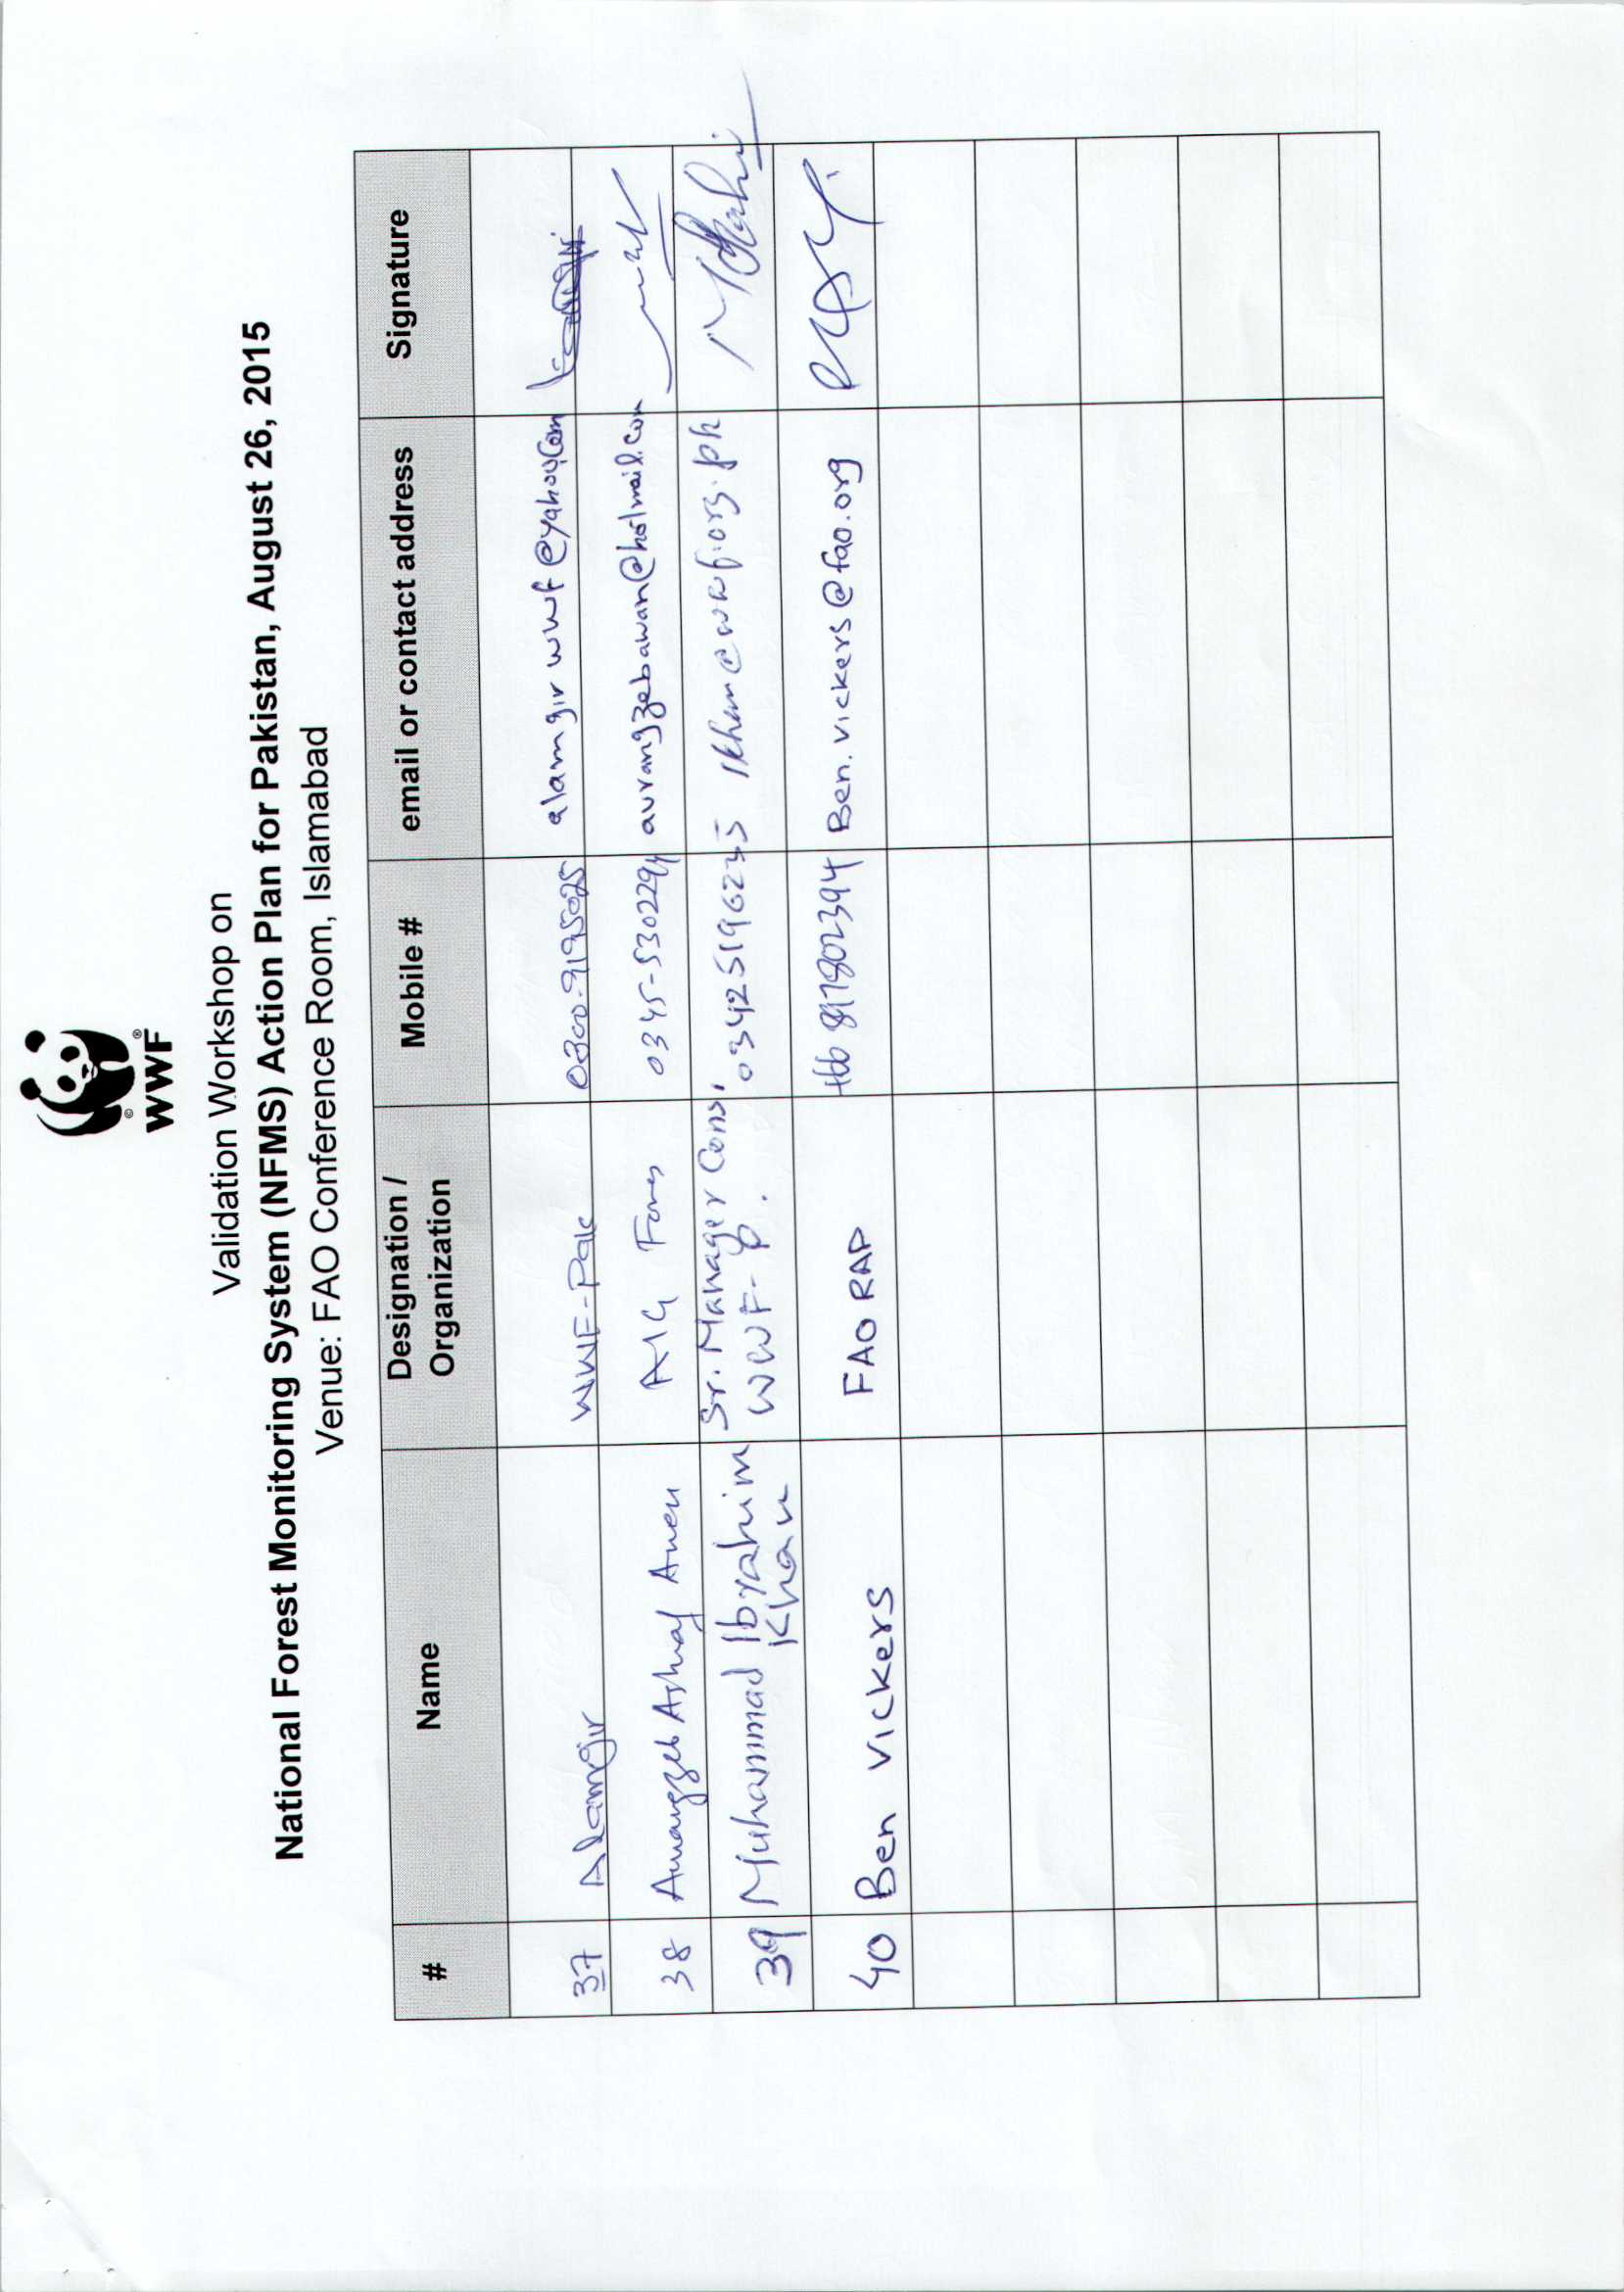 WWF
Validation Workshop on
National Forest Monitoring System (NFMS) Action Plan for Pakistan, August 26, 2015
Venue: FAO Conference Room, Islamabad
# Name Designation / Organization Mobile # email or contact address Signature
37 Alamgir WWF-Pak 0300-9195025 alamgirwwf@yahoo.com
38 Aurangzeb Ashraf Awan AIG 0345-5302294 aurangzebawan@hotmail.com
39 Muhammad Ibrahim Sr. Manager Cons,
Khan WWF-P. 03425196235
40 Ben Vickers FAO RAP +66 Ben.vickers@fao.org